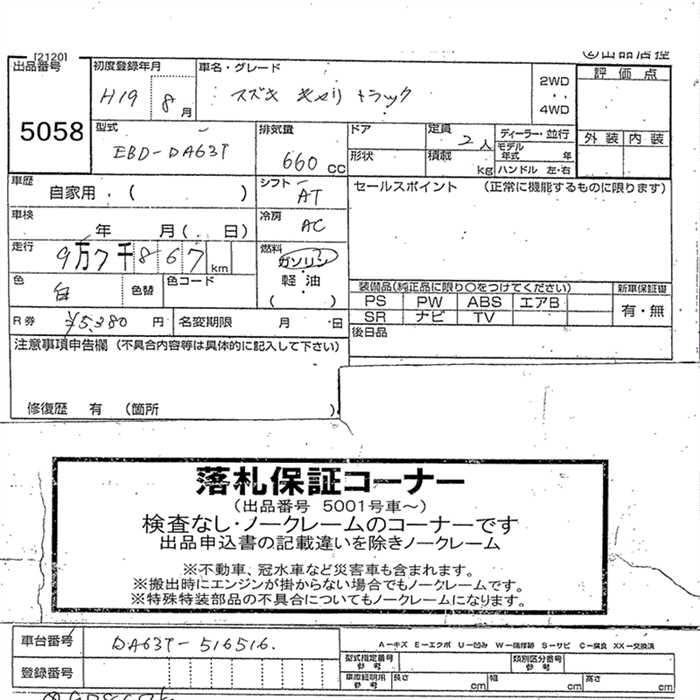 [2120]
出品番号 初度登録年月 車名・グレード ②出品店控
5058 H19 8月 スズキ キャリ トラック 2WD ・・ 4WD 評価点
外装 内装
型式 排気量 ドア 定員 2人 ディーラー・並行
EBD-DA63T 660cc 形状 積載 kg モデル年式 年
ハンドル 左・右
車歴 自家用 ( ) シフト AT セールスポイント (正常に機能するものに限ります)
車検 年 月( 日) 冷房 AC
走行 9万7千867km 燃料 ガソリン
軽油
( )
色 白 色替 色コード 装備品(純正品に限り○をつけてください) 新車保証書
PS PW ABS エアB 有・無
R券 ¥5,280円 名変期限 月 日 SR ナビ TV
注意事項申告欄 (不具合内容等は具体的に記入して下さい) 後日品
修復歴 有 (箇所 )
落札保証コーナー
(出品番号 5001号車～)
検査なし・ノークレームのコーナーです
出品申込書の記載違いを除きノークレーム
※不動車、冠水車など災害車も含まれます。
※搬出時にエンジンが掛からない場合でもノークレームです。
※特殊特装部品の不具合についてもノークレームになります。
車台番号 DA63T-516516. A−キズ E−エクボ U−凹み W−補修跡 S−サビ C−腐食 XX−交換済
型式指定番号 参考 類別区分番号 参考
登録番号 車庫証明用 参考 長さ cm 幅 cm 高さ cm